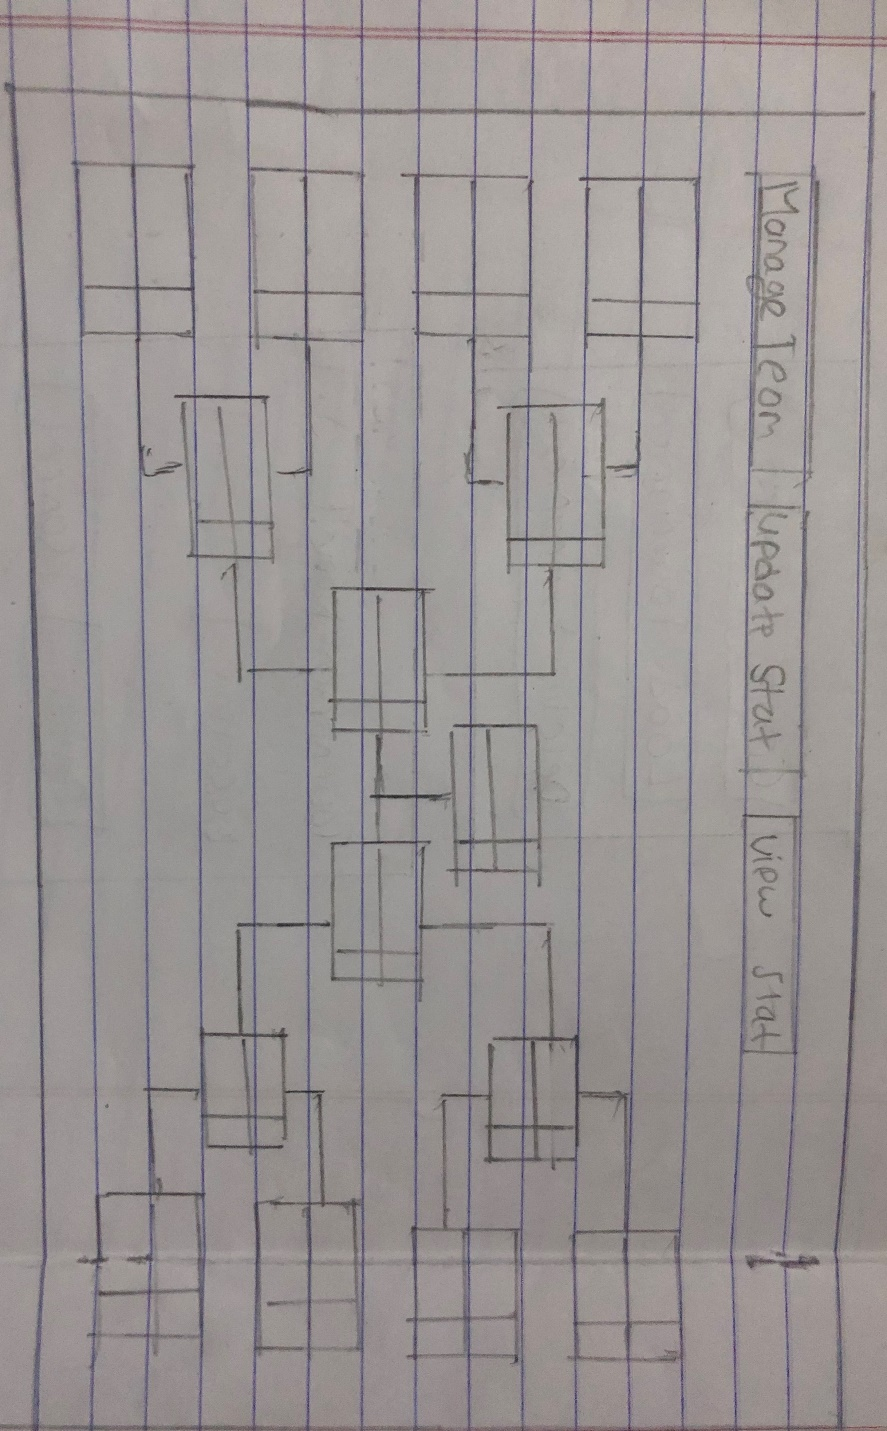 Manage Team
Update Stat
View Stat